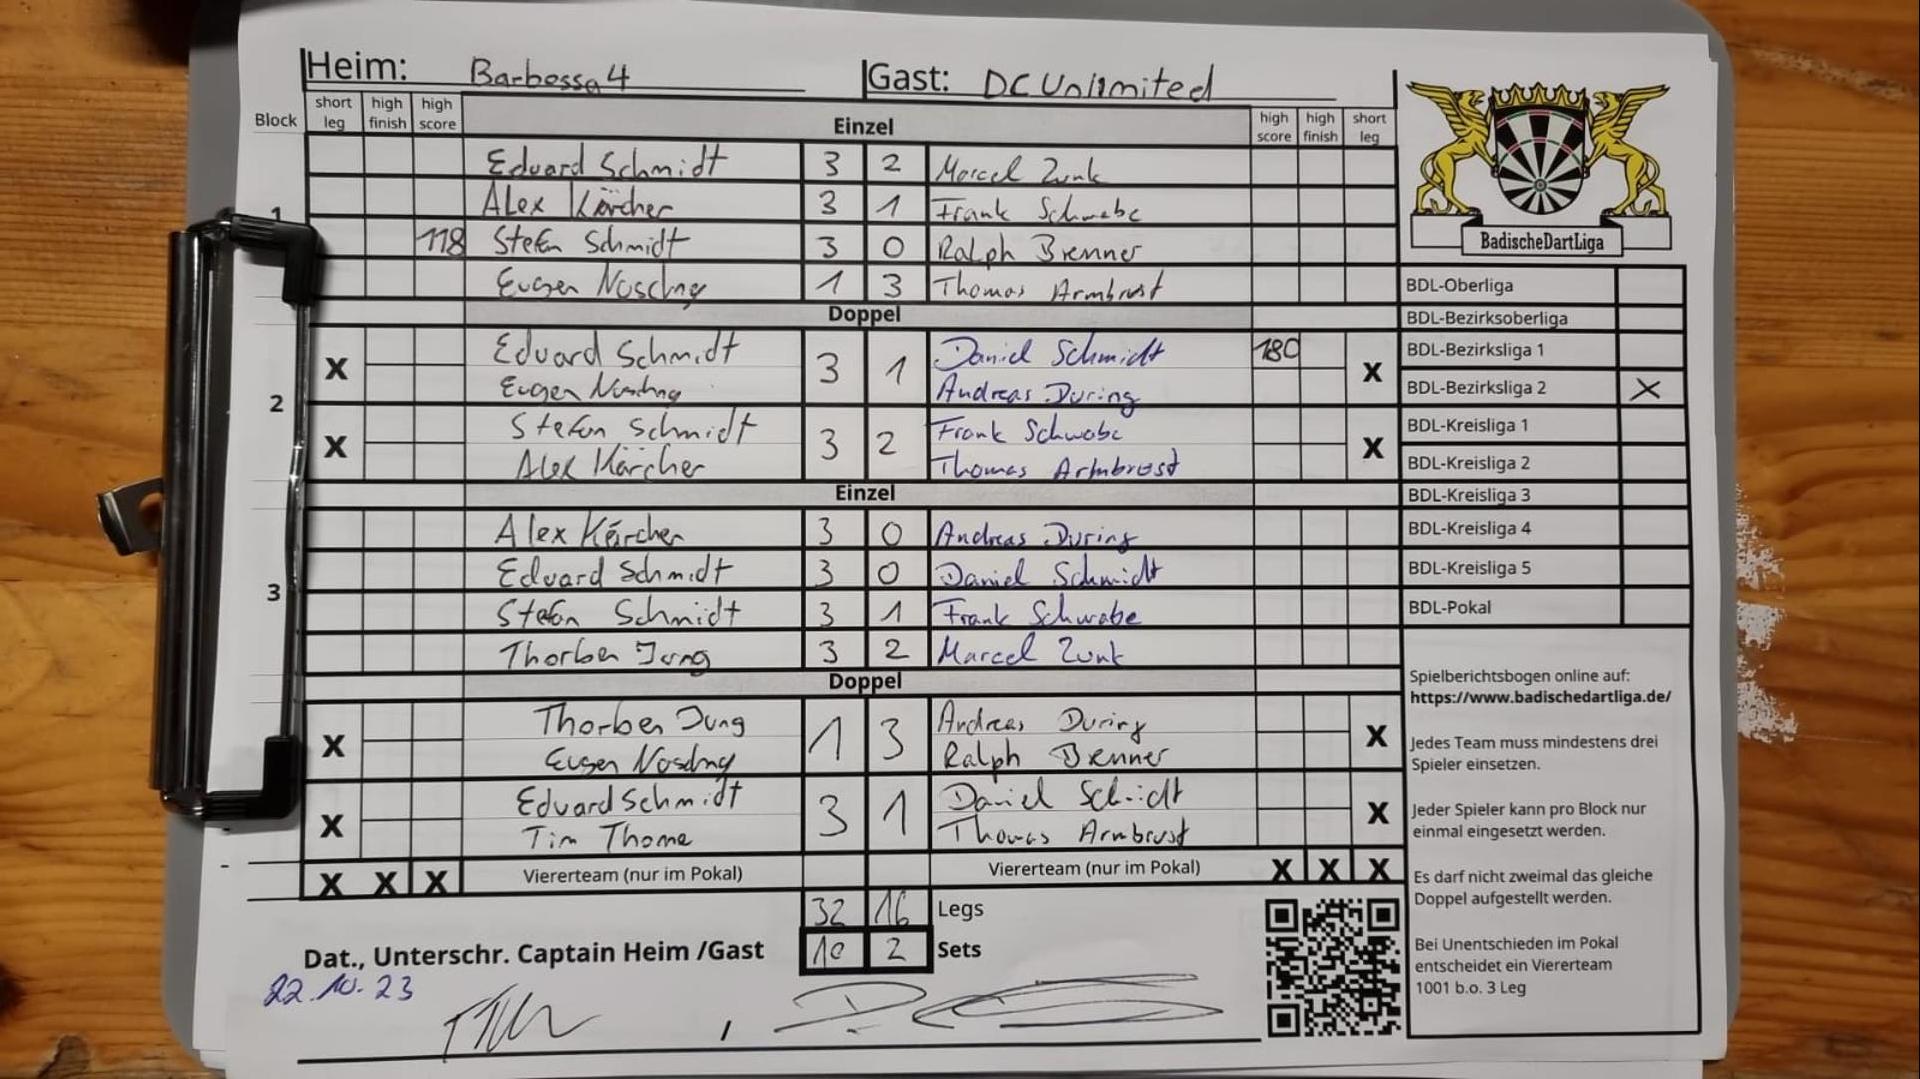 Heim: Barbossa 4 Gast: DC Unlimited
Block short leg high finish high score Einzel high score high finish short leg
Eduard Schmidt 3 2 Marcel Zunk
1 Alex Kärcher 3 1 Frank Schwabe
118 Stefan Schmidt 3 0 Ralph Brenner
Eugen Noschny 1 3 Thomas Armbrust
Doppel
X Eduard Schmidt 3 1 Daniel Schmidt 180 X
Eugen Andreas During
2
X Stefan Schmidt 3 2 Frank Schwabe X
Alex Kärcher Thomas Armbrust
Einzel
Alex Kärcher 3 0 Andreas During
Eduard Schmidt 3 0 Daniel Schmidt
3 Stefan Schmidt 3 1 Frank Schwabe
Thorben Jung 3 2 Marcel Zunk
Doppel
X Thorben Jung 1 3 Andreas During X
Eugen Ralph Brenner
X Eduard Schmidt 3 1 Daniel Schmidt X
Tim Thome Thomas Armbrust
X X X Viererteam (nur im Pokal) Viererteam (nur im Pokal) X X X
32 16 Legs
Dat., Unterschr. Captain Heim /Gast 10 2 Sets
22.10.23
BadischeDartLiga
BDL-Oberliga
BDL-Bezirksoberliga
BDL-Bezirksliga 1
BDL-Bezirksliga 2 X
BDL-Kreisliga 1
BDL-Kreisliga 2
BDL-Kreisliga 3
BDL-Kreisliga 4
BDL-Kreisliga 5
BDL-Pokal
Spielberichtsbogen online auf:
https://www.badischedartliga.de/
Jedes Team muss mindestens drei
Spieler einsetzen.
Jeder Spieler kann pro Block nur
einmal eingesetzt werden.
Es darf nicht zweimal das gleiche
Doppel aufgestellt werden.
Bei Unentschieden im Pokal
entscheidet ein Viererteam
1001 b.o. 3 Leg